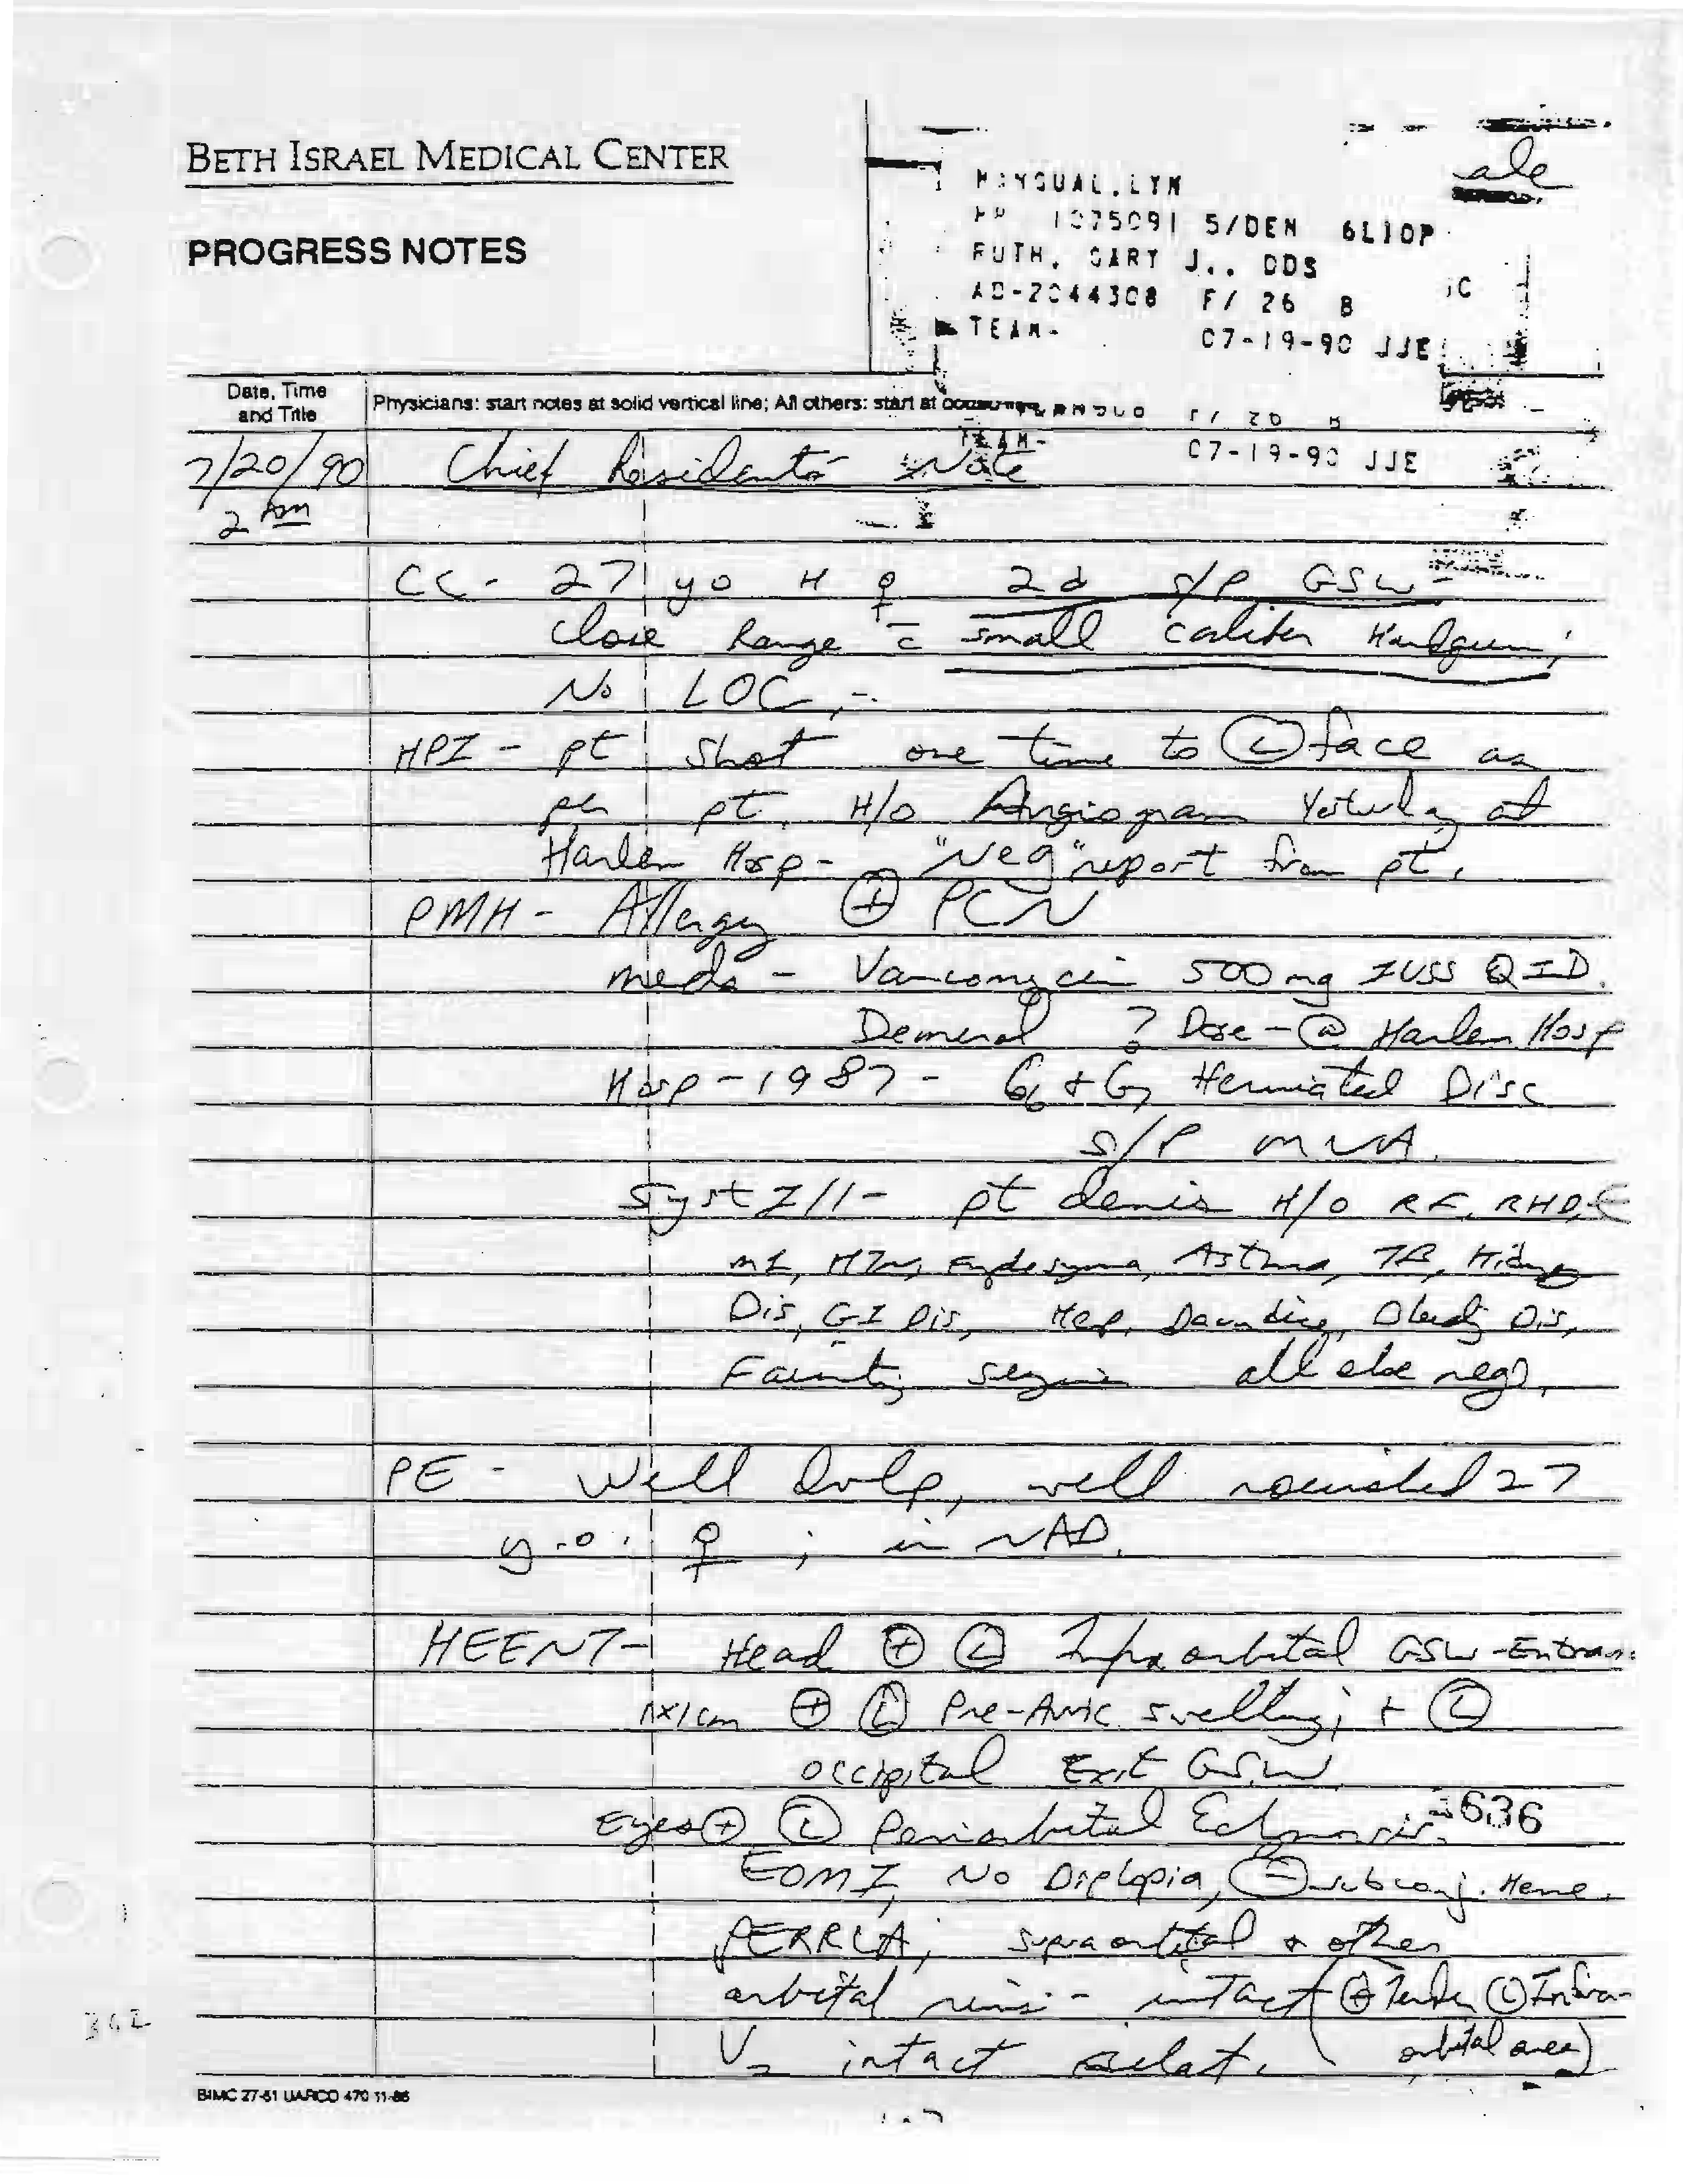 BETH ISRAEL MEDICAL CENTER
PROGRESS NOTES
ale
1075091 5/DEN 6L10P
RUTH, GARY J., DDS
AD-2044308 F/ 26 B
TEAM-
07-19-90 JJE
Date, Time
and Title
Physicians: start notes at solid vertical line; All others: start at
TEAM-
07-19-90 JJE
7/20/90 Chief Resident's Note
2 Am
CC- 27 yo H ♀ 2d s/p GSW -
close Range c̄ small caliber Handgun;
No LOC,-
HPI - pt shot one time to Ⓛ face as
per pt. H/O Angiogram Yesterday at
Harlem Hosp- "Neg" report from pt.
PMH - Allergy ⊕ PCN
meds - Vancomycin 500mg IVSS QID.
Demerol ? Dose - @ Harlem Hosp
Hosp - 1987 - C6 + C7 Herniated Disc
S/P MVA.
Syst Ill- pt denies H/O RF, RHD,
MI, HTN, Emphesyma, Asthma, TB, Kidney
Dis, GI Dis, Hep, Jaundice, Bleedg Dis,
Fainting seizures all else neg.
PE - Well dvlp, well nourished 27
y.o. ♀ ; in NAD.
HEENT- Head ⊕ Ⓛ Infraorbital GSW-Entran
1x1cm ⊕ Ⓛ Pre-Auric swelling; + Ⓛ
occipital Exit GSW
Eyes ⊕ Ⓛ Periorbital Echymosis.
636
EOMI, No Diplopia, ⊖ subconj. Heme.
PERRLA; supraorbital + other
orbital rims - intact (⊕ Tender Ⓛ Infra-
orbital area)
V2 intact bilat.
342
BIMC 27-51 UARCO 470 11-86